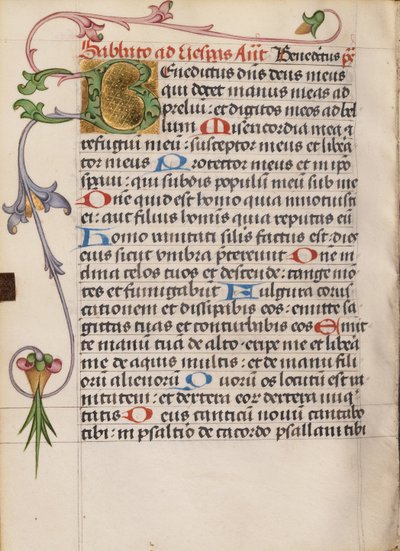 Sabbato ad Vesp̄as Ant̄. Benedictus p̄s
Benedictus dn̄s deus meus
qui docet manus meas ad
preliu᷑: et digitos meos ad bel
lum Misericordia mea ⁊
refugiū meū: susceptor meus et libera
tor meus Protector meus et in ipo
speraui: qui subdis populum meū sub me
Dn̄e quid est homo quia innotuisti
ei: aut filius hominis quia reputas eū
Homo vanitati similis factus est: dies
eius sicut vmbra pretereunt Dn̄e in
clina celos tuos et descende: tange mon
tes et fumigabūt Fulgura corus
cationem et dissipabis eos: emitte sa
gittas tuas et conturbabis eos Emit
te manū tuā de alto: eripe me et libera
me de aquis multis: et de manu fili
orū alienorū Quorū os locutū est va
nitatem: et dextera eor dextera iniq
tatis Deus canticū nouū cantabo
tibi: in psalterio decacordo psallam tibi